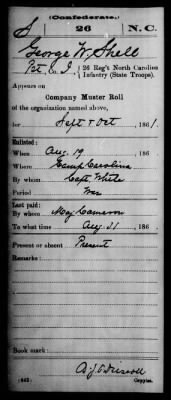 (Confederate.)
S 26 N.C.
George W. Shell
Pvt, Co. I, 26 Reg't North Carolina
Infantry (State Troops).
Appears on
Company Muster Roll
of the organization named above,
for Sept & Oct, 1861.
Enlisted:
When Aug. 19, 186
Where Camp Carolina
By whom Capt. White
Period War
Last paid:
By whom Maj Cameron
To what time Aug 31, 186
Present or absent Present
Remarks:
Book mark:
(642)
Copyist.